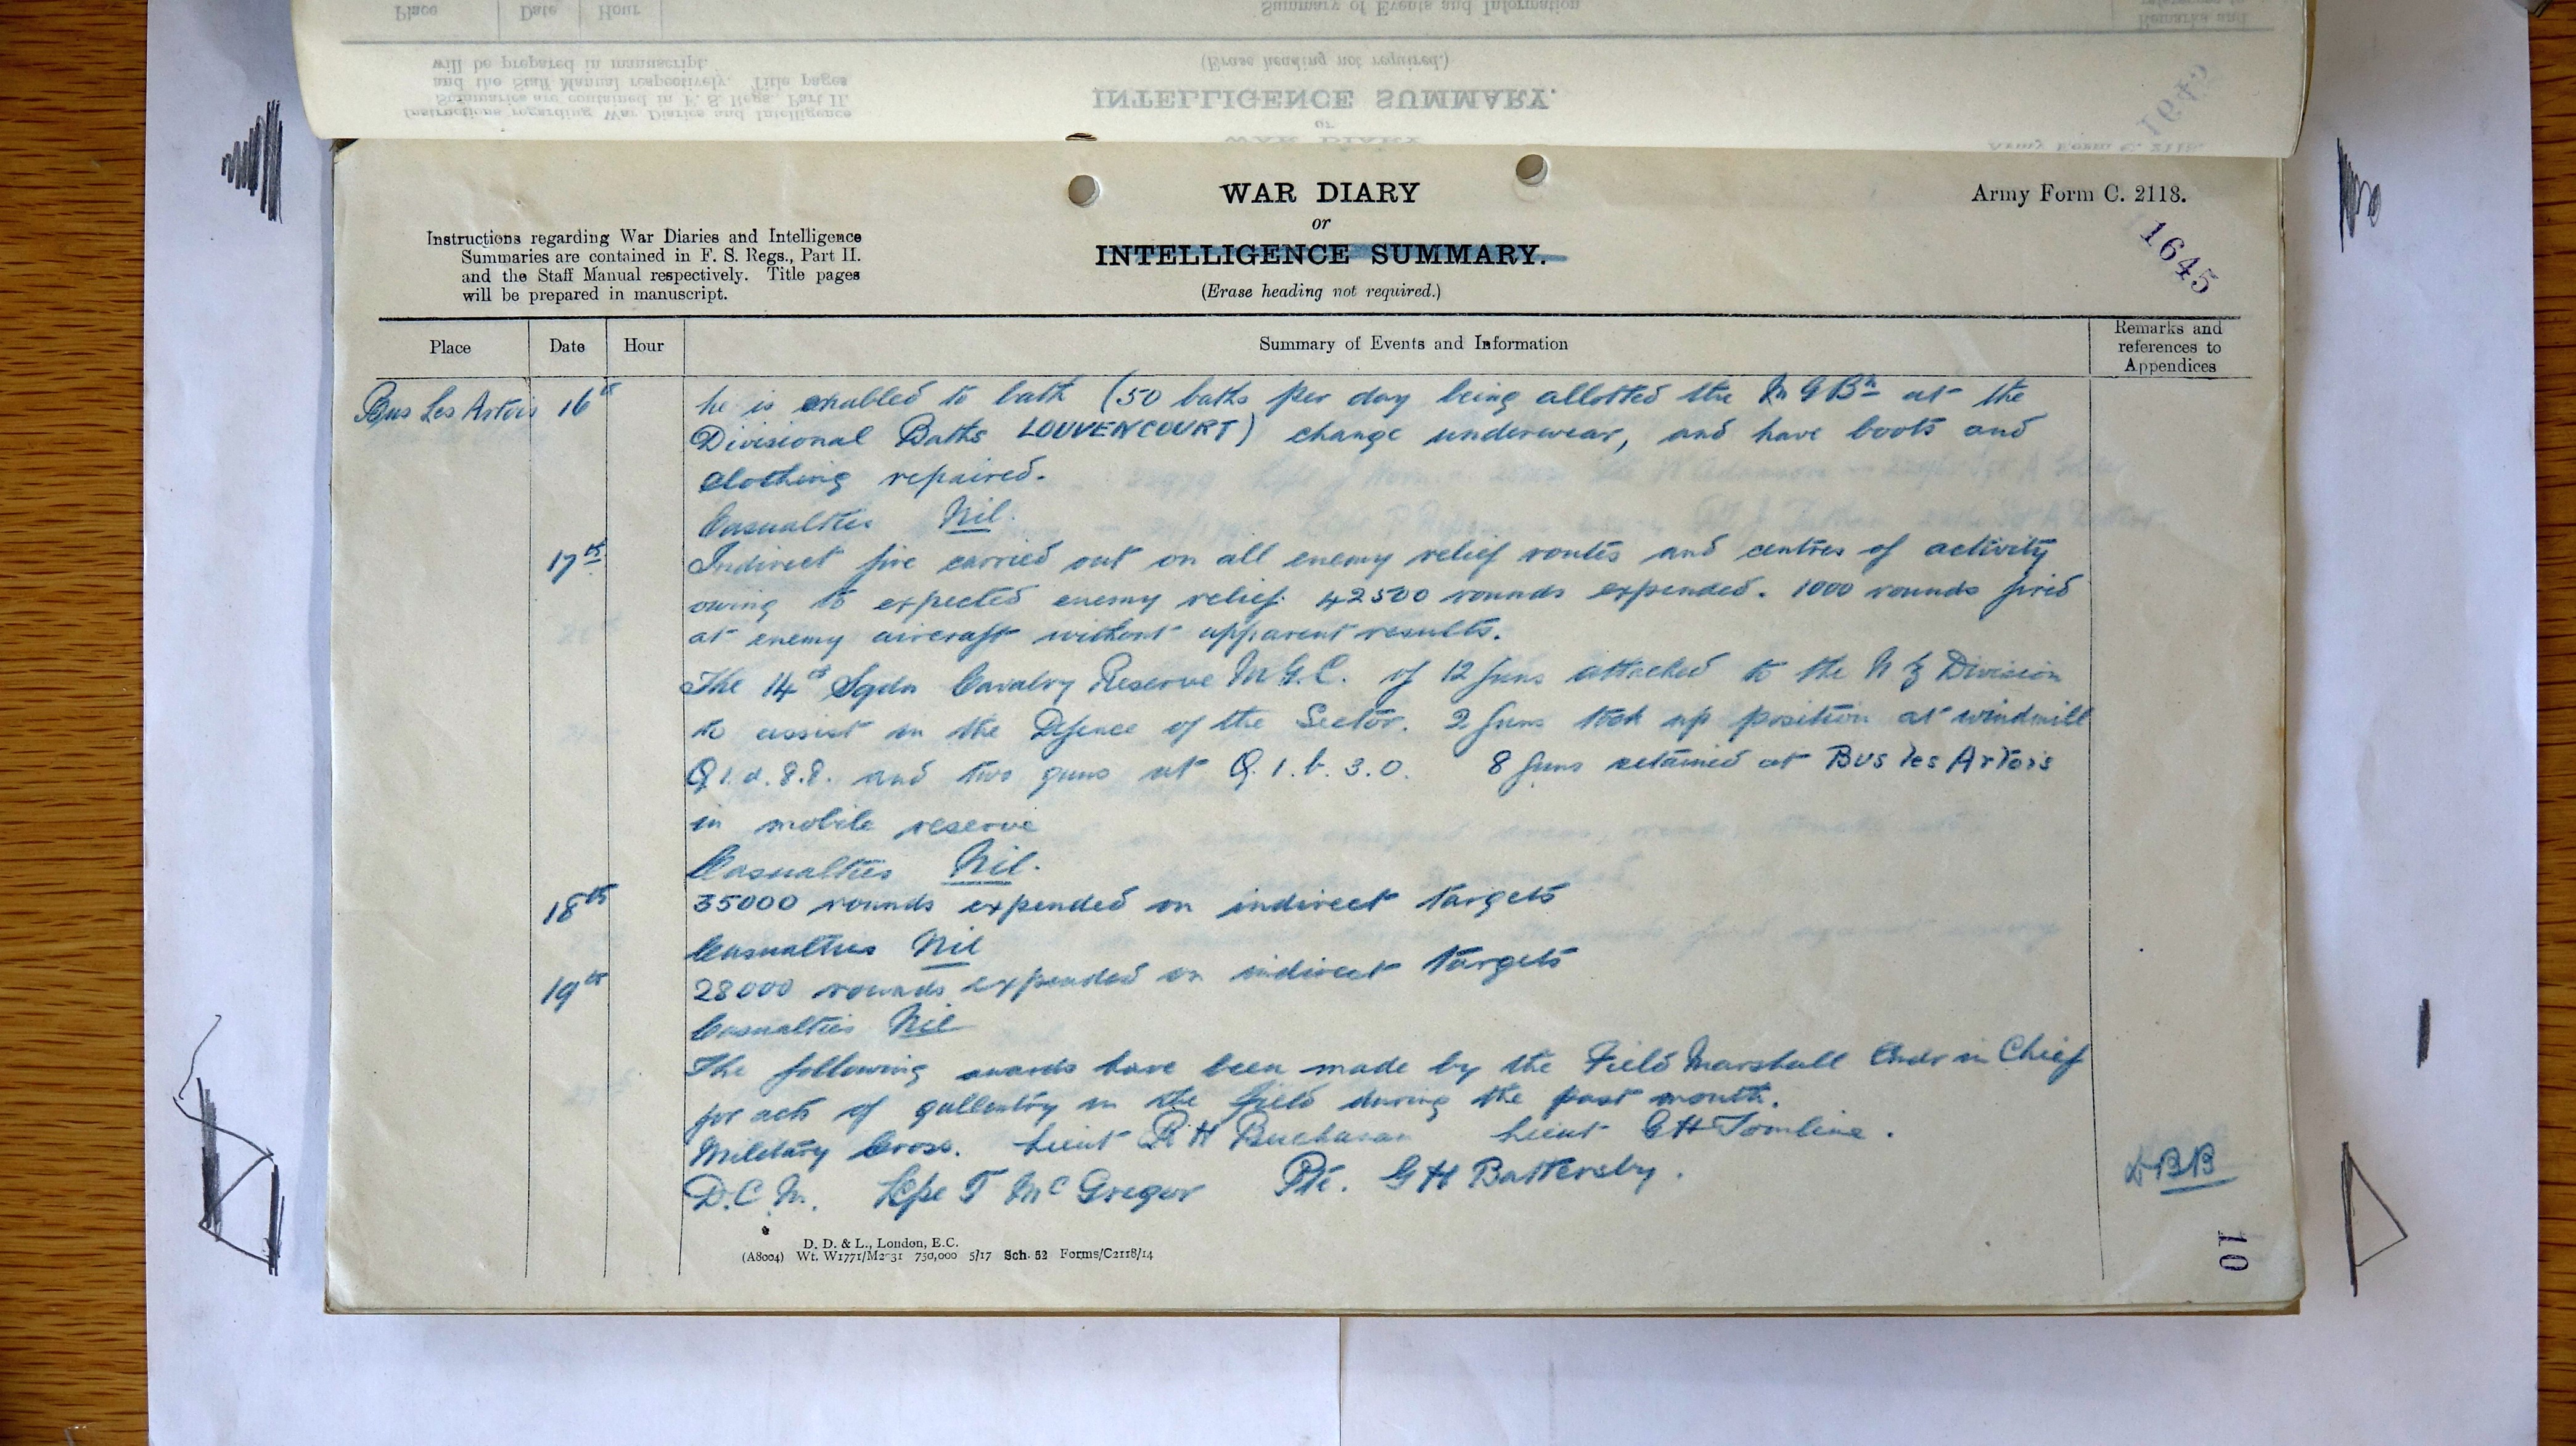 Place Date Hour Summary of Events and Information Remarks and
(Erase heading not required.)
will be prepared in manuscript.
and the Staff Manual respectively. Title pages
Summaries are contained in F. S. Regs., Part II.
Instructions regarding War Diaries and Intelligence
INTELLIGENCE SUMMARY.
or
WAR DIARY
Army Form C. 2118.
1646
WAR DIARY
or
INTELLIGENCE SUMMARY.
(Erase heading not required.)
Army Form C. 2118.
1645
Instructions regarding War Diaries and Intelligence
Summaries are contained in F. S. Regs., Part II.
and the Staff Manual respectively. Title pages
will be prepared in manuscript.
Place Date Hour Summary of Events and Information Remarks and references to Appendices
Bus Les Artois 16th he is enabled to bath (50 baths per day being allotted the M G Bn at the
Divisional Baths LOUVENCOURT) change underwear, and have boots and
clothing repaired.
Casualties Nil.
17th Indirect fire carried out on all enemy relief routes and centres of activity
owing to expected enemy relief. 42500 rounds expended. 1000 rounds fired
at enemy aircraft without apparent results.
The 14th Sqdn Cavalry Reserve M.G.C. of 12 guns attached to the N Z Division
to assist in the Defence of the Sector. 2 guns took up position at windmill
Q.1.d.8.8. and two guns at Q.1.b.3.0. 8 guns retained at Bus les Artois
in mobile reserve
Casualties Nil.
18th 35000 rounds expended on indirect targets
Casualties Nil
19th 28000 rounds expended on indirect targets
Casualties Nil
The following awards have been made by the Field Marshall Cmdr in Chief
for acts of gallantry in the field during the past month.
Military Cross. Lieut R H Buchanan Lieut G H Tomline.
D.C.M. L/Cpl T McGregor Pte. G H Battersby.
BB
D. D. & L., London, E.C.
(A8004) Wt. W1771/M2-31 750,000 5/17 Sch. 52 Forms/C2118/14
10